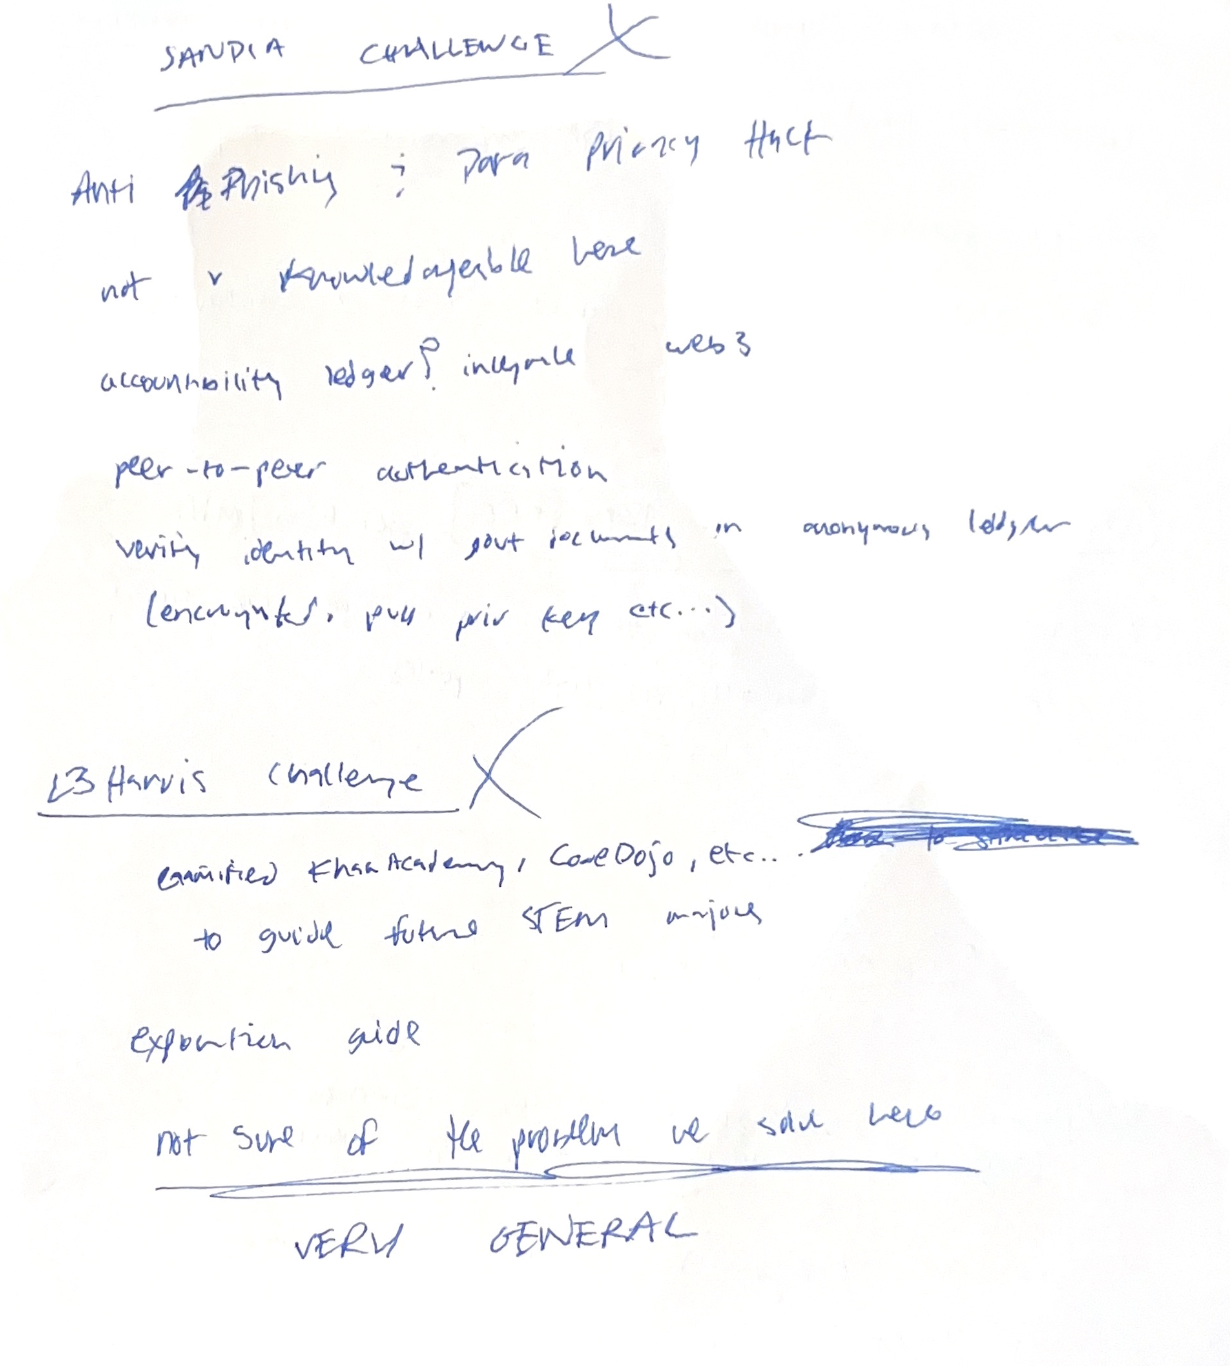 SANDIA CHALLENGE X
Anti Phishing ; Data Privacy Hack
not v knowledageable here
accountability ledger? integrate web3
peer-to-peer authentication
verify identity w/ govt documents in anonymous ledger
(encrypted, pub priv key etc...)
L3 Harris Challenge X
Gamified Khan Academy, CodeDojo, etc...
to guide future STEM majors
guide
not sure of the problem we solve here
VERY GENERAL